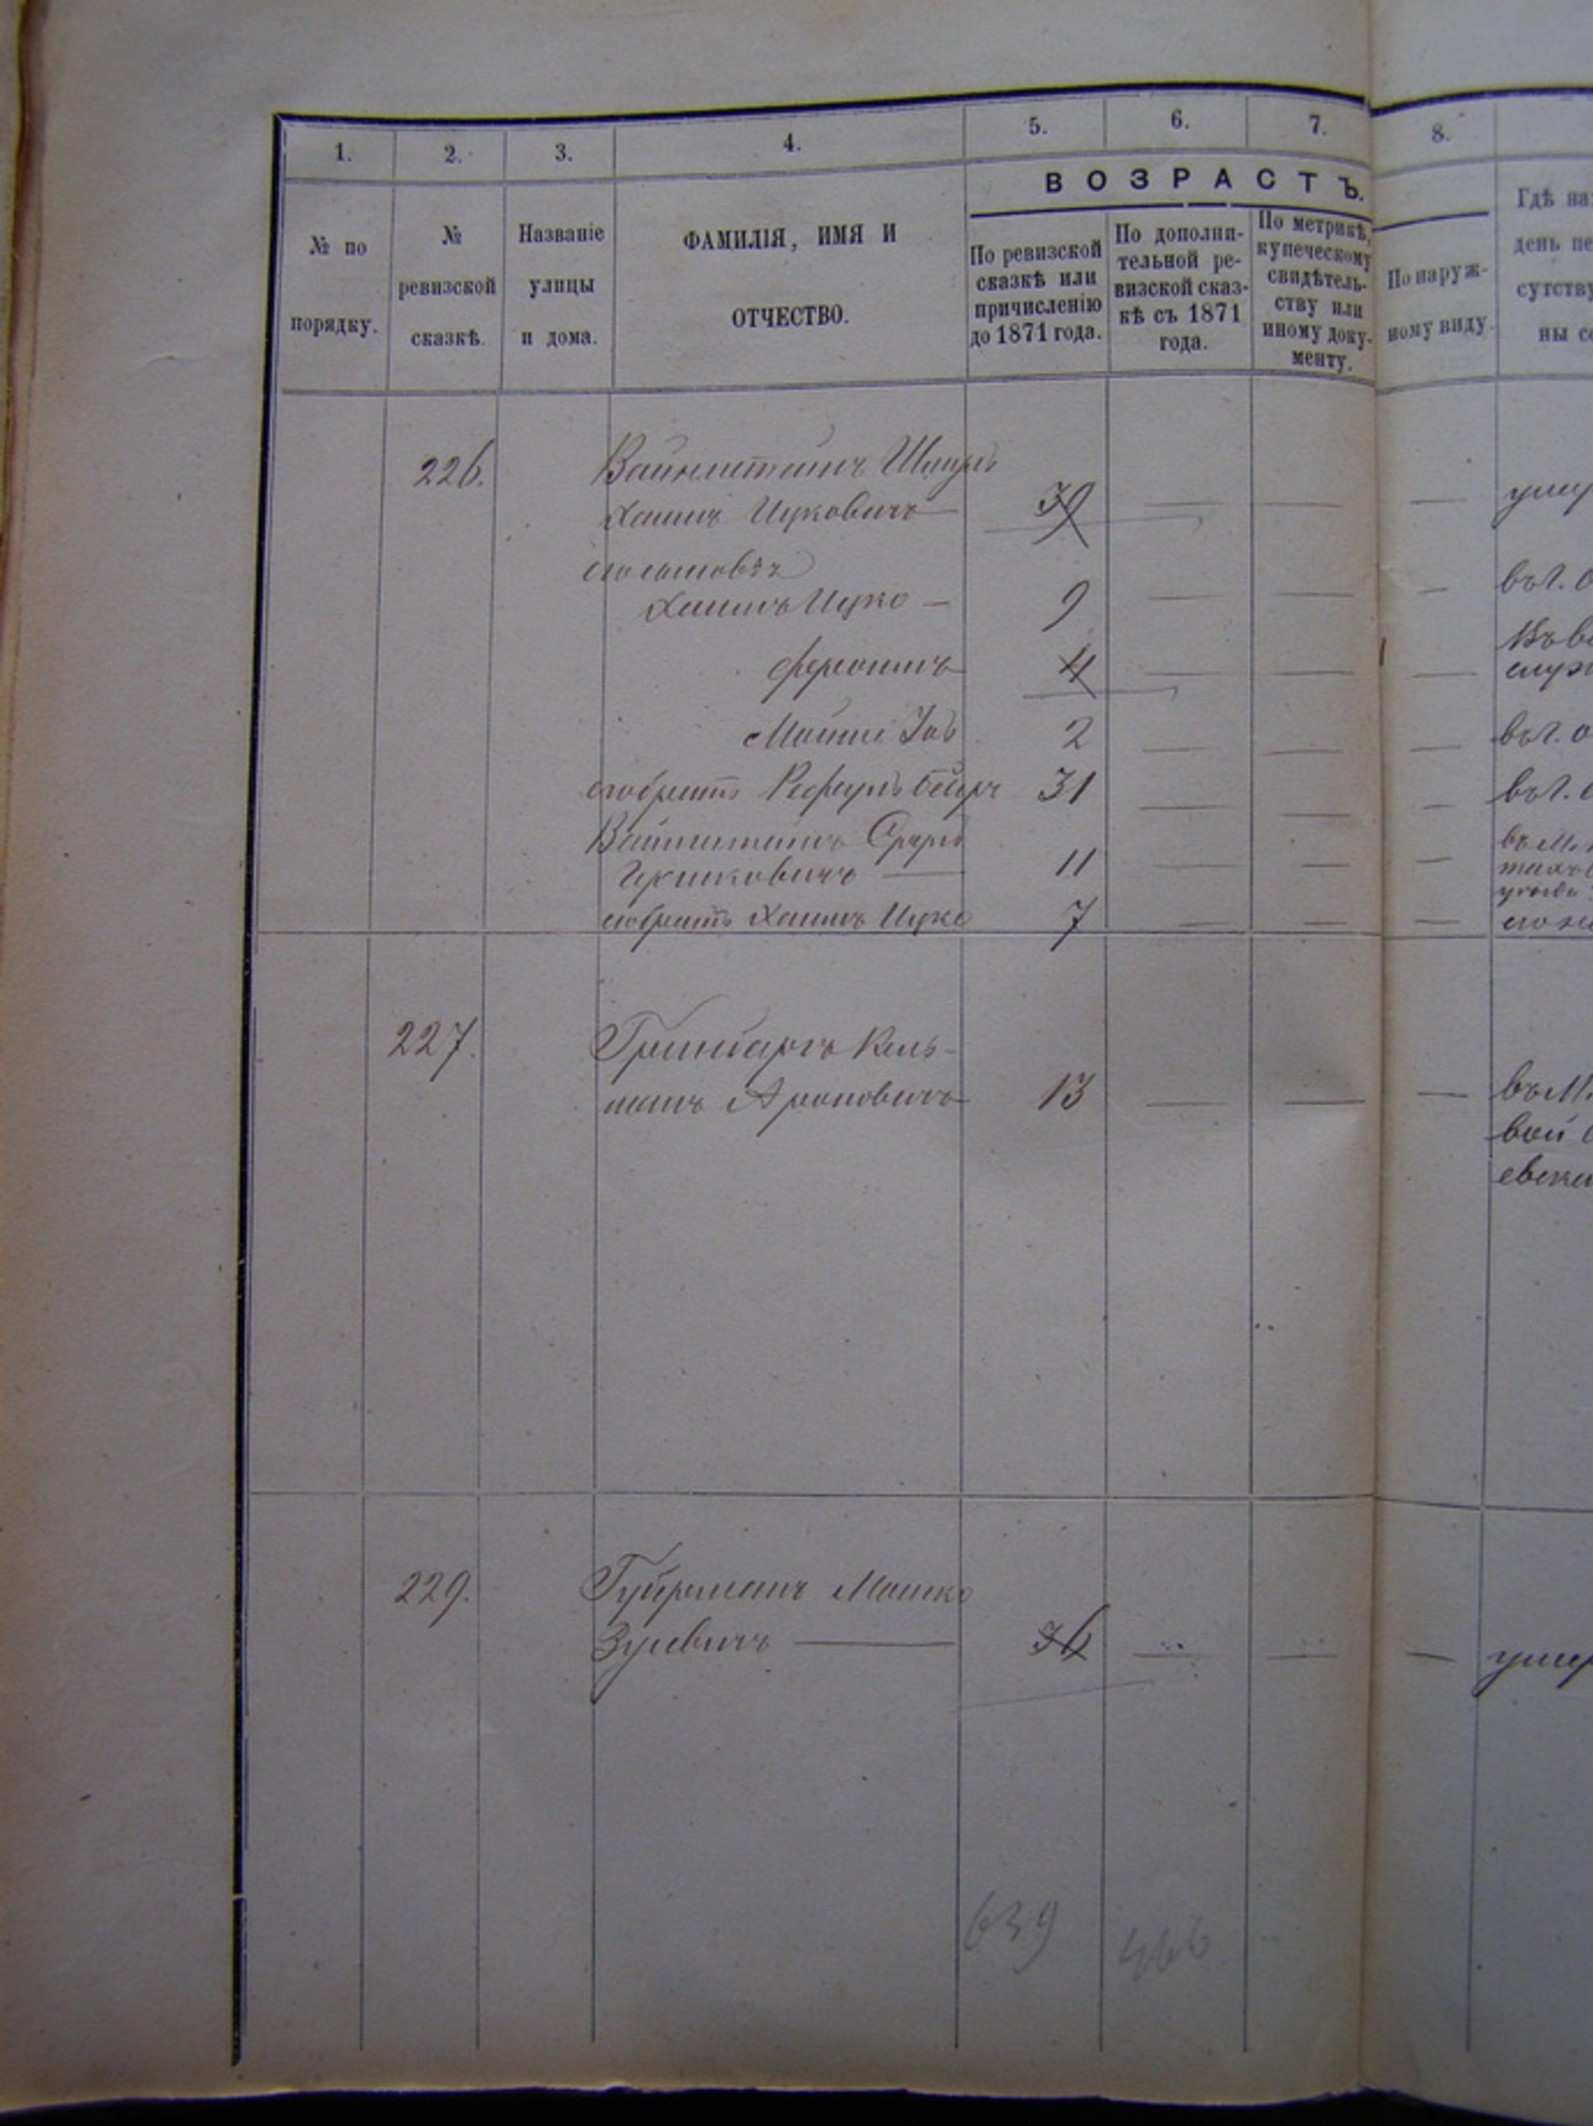 1. 2. 3. 4. 5. 6. 7. 8.
ВОЗРАСТЪ.
№ по порядку.
№ ревизской сказкѣ.
Названіе улицы и дома.
ФАМИЛІЯ, ИМЯ И ОТЧЕСТВО.
По ревизской сказкѣ или причисленію до 1871 года.
По дополни-тельной ре-визской сказ-кѣ съ 1871 года.
По метрикѣ, купеческому свидѣтель-ству или иному доку-менту.
По наруж-ному виду.
Гдѣ на
день пе
сутству
ны со
226. Вайнштейнъ Шмуль
Хаимъ Ицковичъ — 39 — — — умер
его сыновья
Хаимъ Ицко — 9 — — — въ г. о
4 — — —
2 — — — въ г. о
его братъ 31 — — — въ г.
Вайнштейнъ Сруль
Ицковичъ — 11 — — —
его братъ Хаимъ Ицко 7 — — —
227. Гринбаргъ Кель-
манъ Ароновичъ 13 — — — въ М.
вой
евски
229. Губерманъ Мошко
Зусевичъ — 36 — — — умер
639
466